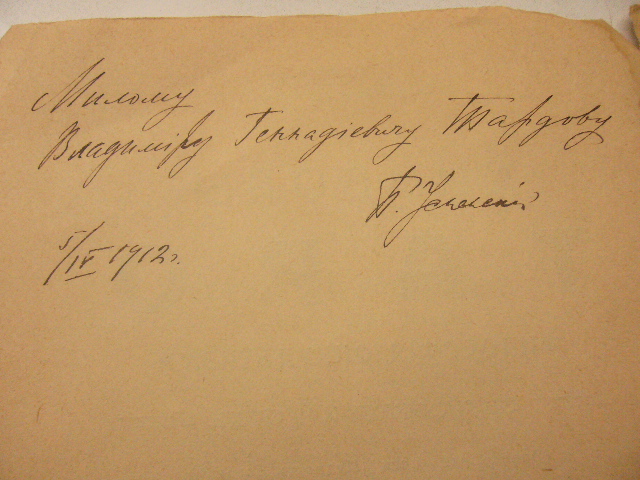 Милому
Владиміру Геннадіевичу Тардову
Б.
5/IV 1912 г.